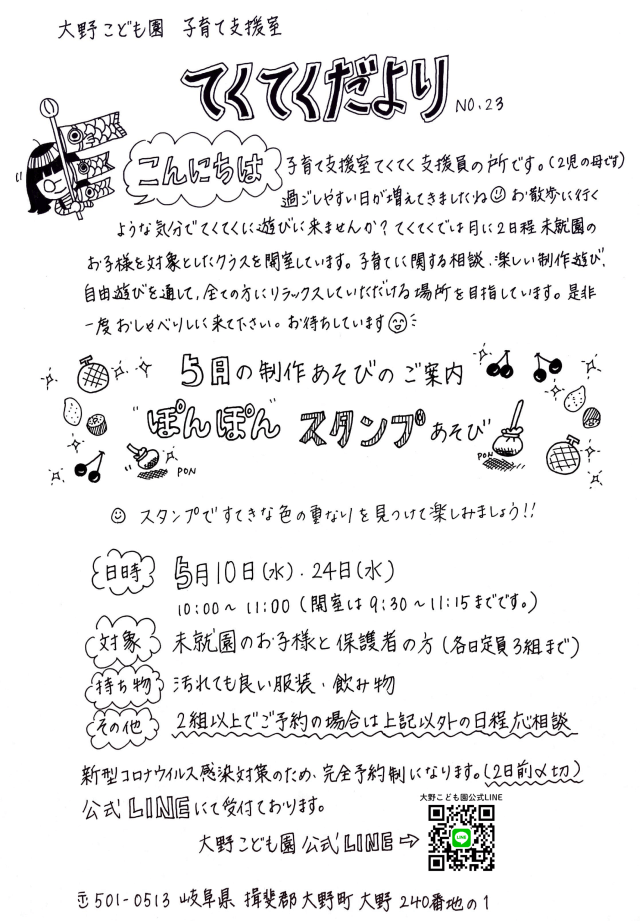 大野こども園 子育て支援室
てくてくだより NO.23
こんにちは
子育て支援室てくてく支援員の所です。(2児の母です)
過ごしやすい日が増えてきましたね お散歩に行く
ような気分でてくてくに遊びに来ませんか？てくてくでは月に2日程 未就園の
お子様を対象としたクラスを開室しています。子育てに関する相談、楽しい制作遊び、
自由遊びを通して、全ての方にリラックスしていただける場所を目指しています。是非
一度おしゃべりしに来て下さい。お待ちしています
5月の制作あそびのご案内
"ぽんぽん"スタンプあそび
PON
PON
スタンプですてきな色の重なりを見つけて楽しみましょう!!
日時 5月10日(水)・24日(水)
10:00〜11:00(開室は9:30〜11:15までです。)
対象 未就園のお子様と保護者の方(各日定員3組まで)
持ち物 汚れても良い服装・飲み物
その他 2組以上でご予約の場合は上記以外の日程応相談
新型コロナウイルス感染対策のため、完全予約制になります。(2日前〆切)
公式LINEにて受付ております。
大野こども園公式LINE
大野こども園公式LINE⇨
LINE
〒501-0513 岐阜県 揖斐郡大野町大野 240番地の1